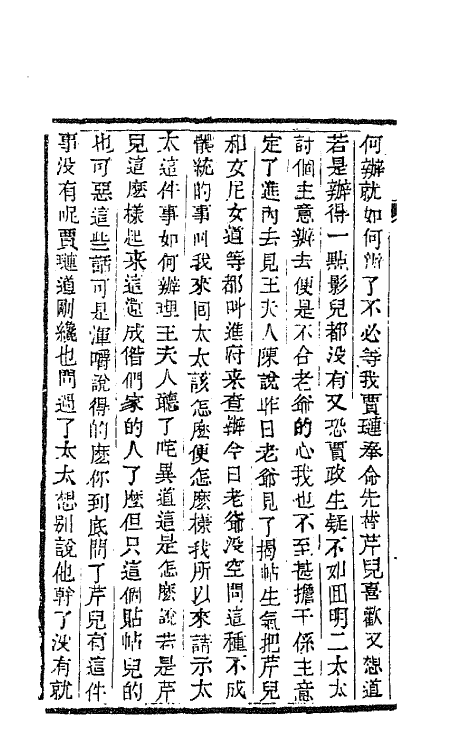 何辦就如何辦了不必等我賈璉奉命先替芹兒喜歡又想道
若是辦得一點影兒都沒有又恐賈政生疑不如回明二太太
討個主意辦去便是不合老爺的心我也不至甚擔干係主意
定了進內去見王夫人陳說昨日老爺見了揭帖生氣把芹兒
和女尼女道等都叫進府来查辦今日老爺没空問這種不成
體統的事叫我來回太太該怎麽便怎麽樣我所以來請示太
太這件事如何辦理王夫人聽了咤異道這是怎麽說若是芹
兒這麽樣起来這還成偺們家的人了麽但只這個貼帖兒的
也可惡這些話可是渾嚼說得的麽你到底問了芹兒有這件
事没有呢賈璉道剛纔也問過了太太想别說他幹了没有就